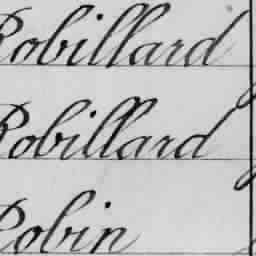 Robillard
Robillard
Robin